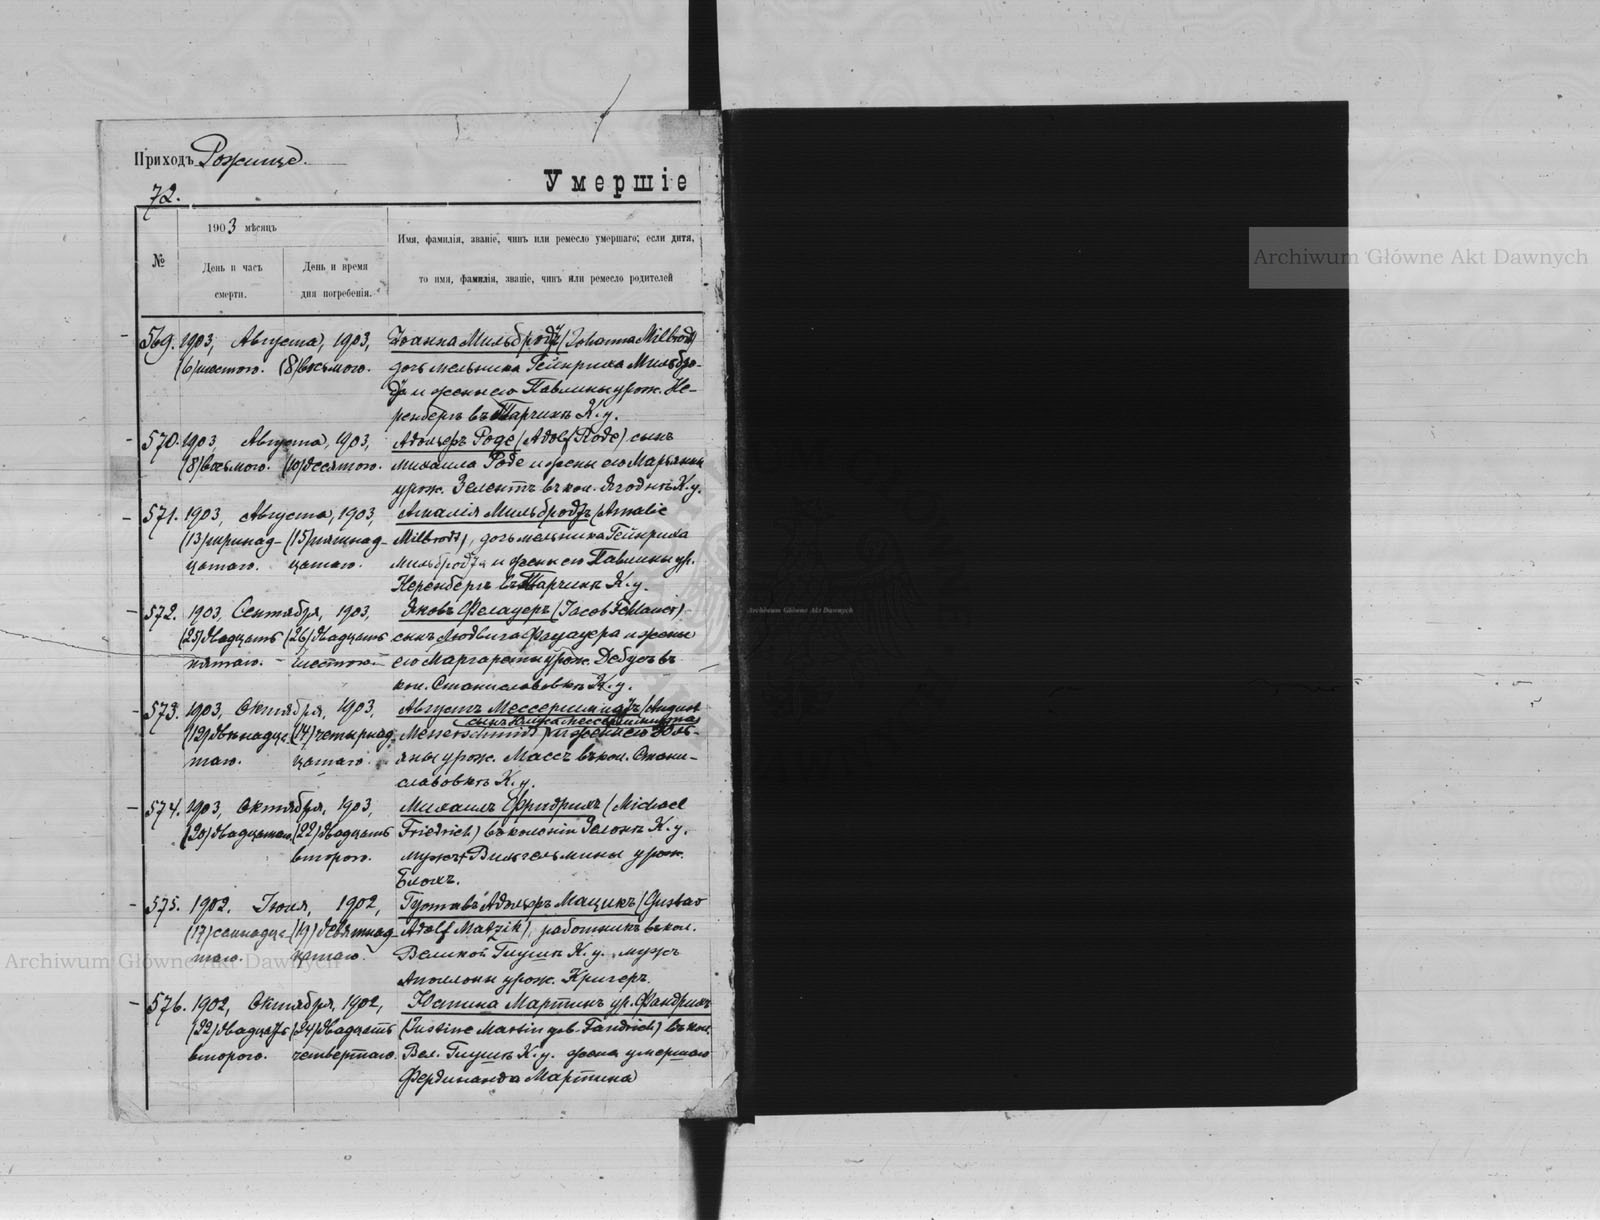 Приходъ Рожище.
72.
Умершіе
№
1903 мѣсяцъ
День и часъ смерти.
День и время дня погребенія.
Имя, фамилія, званіе, чинъ или ремесло умершаго; если дитя,
то имя, фамилія, званіе, чинъ или ремесло родителей
569. 1903, Августа, 1903, Іоанна Мильбродтъ (Johanna Milbrodt)
(6) шестого. (8) восьмого. дочь мельника Гейнриха Мильбро-
дта и жены его Павлины урож. Не-
ренбергъ въ К. у.
570. 1903, Августа, 1903, Адольфъ Роде (Adolf Rode), сынъ
(8) восьмого. (10) десятого. Михаила Роде и жены его Марьянны
урож. Зелентъ въ кол. Ягодн К. у.
571. 1903, Августа, 1903, Амалія Мильбродтъ (Amalie
(13) тринад- (15) пятнад- Milbrodt), дочь мельника Гейнриха
цатаго. цатаго. Мильбродта и жены его Павлины ур.
Неренбергъ въ К. у.
572. 1903, Сентября, 1903, Яковъ Фелауеръ (Jacob Felauer)
(25) двадцать (26) двадцать сынъ Людвига Фелауера и жены
пятаго. шестого. его Маргареты урож. Дебусъ въ
кол. Станиславовкѣ К. у.
573. 1903, Октября, 1903, Августъ Мессершмидтъ (August
сынъ Мессершмидта
(12) двѣнадца- (14) четырнад- Messerschmidt) и жены его Юль-
таго. цатаго. яны урож. Массъ въ кол. Стани-
славовкѣ К. у.
574. 1903, Октября, 1903, Михаилъ Фридрихъ (Michael
(20) двадцатаго. (22) двадцать Friedrich) въ колоніи К. у.
второго. мужъ Вильгельмины урож.
Блохъ.
575. 1902, Іюля, 1902, Густавъ Адольфъ Мацикъ (Gustav
(17) семнадца- (19) девятнад- Adolf Matzik), работникъ въ кол.
таго. цатаго. Великой Глушѣ К. у. мужъ
Аполлоны урож. Кригеръ.
576. 1902, Октября, 1902, Юстина Мартинъ ур. Фандрихъ
(22) двадцать (24) двадцать (Justine Martin geb. Fandrich) въ кол.
второго. четвертаго. Вел. Глушѣ К. у. жена умершаго
Фердинанда Мартина
Archiwum Główne Akt Dawnych
Archiwum Główne Akt Dawnych
Archiwum Główne Akt Dawnych